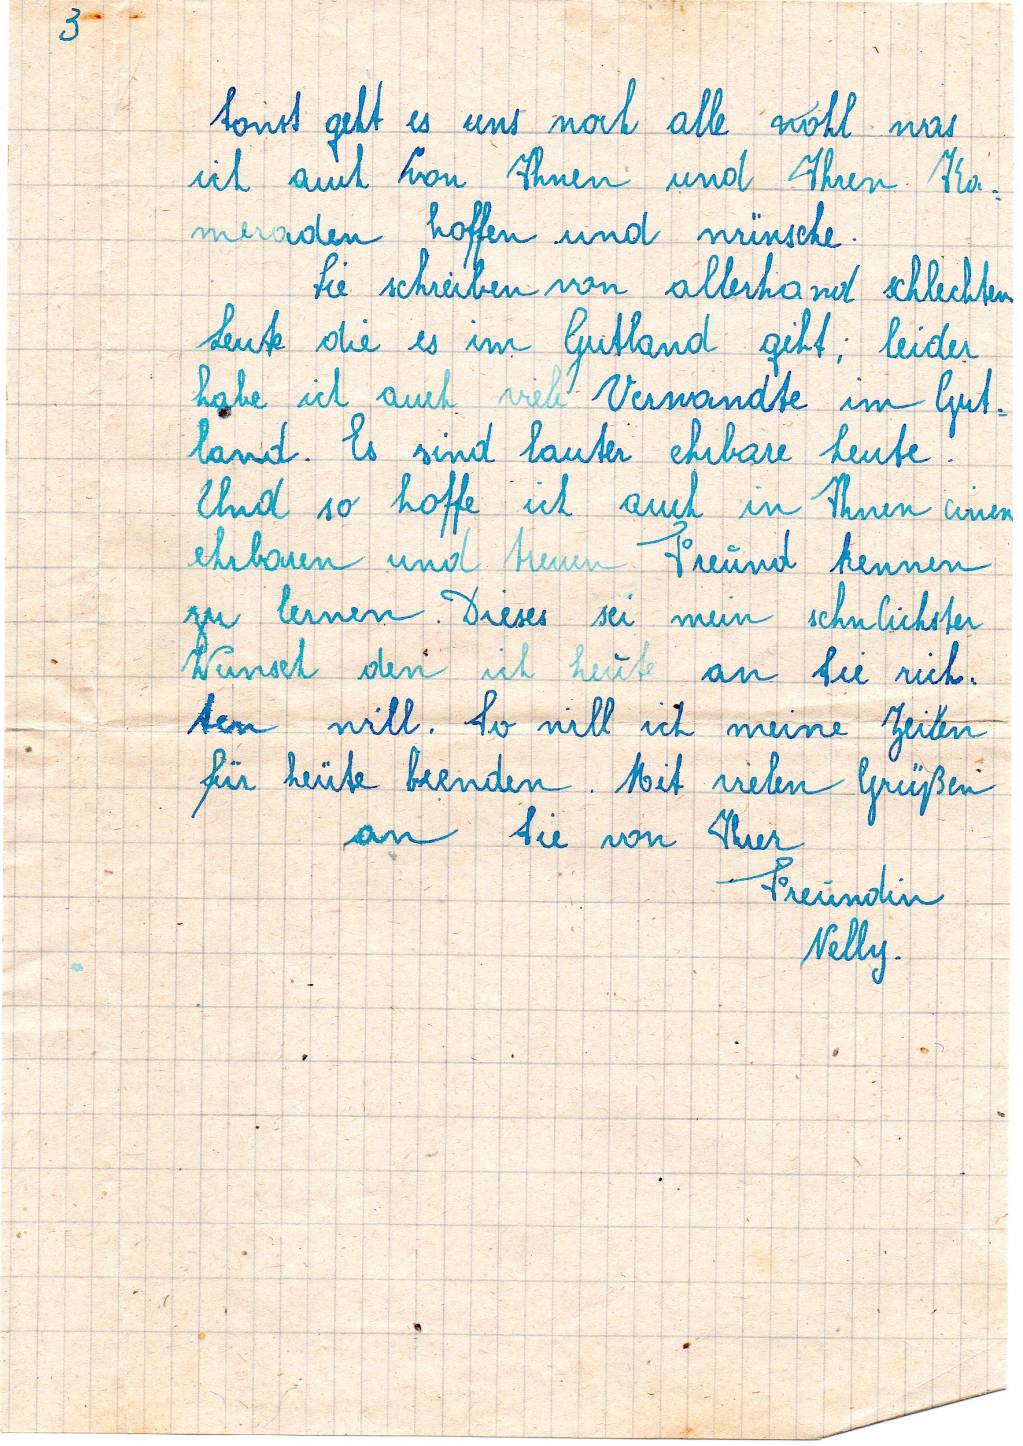 3
Sonst geht es uns noch alle wohl was
ich auch von Ihnen und Ihren Ka=
meraden hoffen und wünsche.
Sie schreiben von allerhand schlechten
Leute die es im Gutland gibt; leider
habe ich auch viele Verwandte im Gut=
land. Es sind lauter ehrbare Leute.
Und so hoffe ich auch in Ihnen einen
ehrbaren und treuen Freund kennen
zu lernen. Dieses sei mein sehnlichster
Wunsch den ich heute an Sie rich-
ten will. So will ich meine Zeilen
für heute beenden. Mit vielen Grüßen
an Sie von Ihrer
Freundin
Nelly.